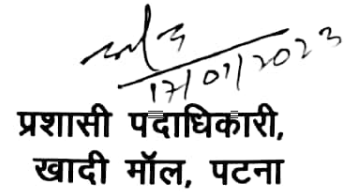 17/07/2023
प्रशासी पदाधिकारी,
खादी मॉल, पटना